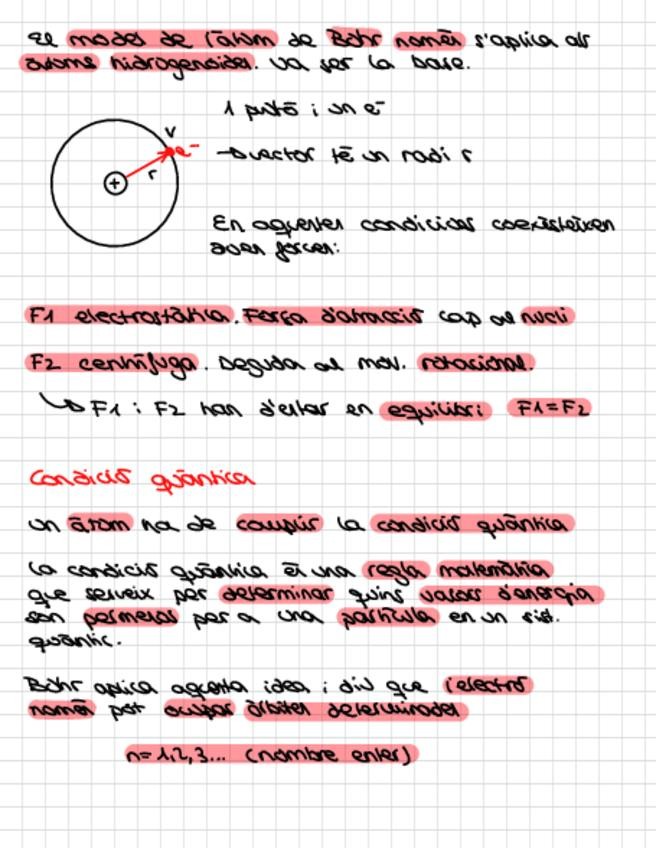 El model de l'àtom de Bohr només s'aplica als
àtoms hidrogenoides. Va ser la base.
1 protó i un e⁻
v
e⁻
→ vector té un radi r
r
+
En aquestes condicions coexisteixen
dues forces:
F1 electrostàtica. Força d'atracció cap al nucli
F2 centrífuga. Deguda al mov. rotacional.
↳ F1 i F2 han d'estar en equilibri F1=F2
Condició quàntica
Un àtom ha de complir la condició quàntica
La condició quàntica és una regla matemàtica
que serveix per determinar quins valors d'energia
són permesos per a una partícula en un sist.
quàntic.
Bohr aplica aquesta idea i diu que l'electró
només pot ocupar òrbites determinades
n=1,2,3... (nombre enter)